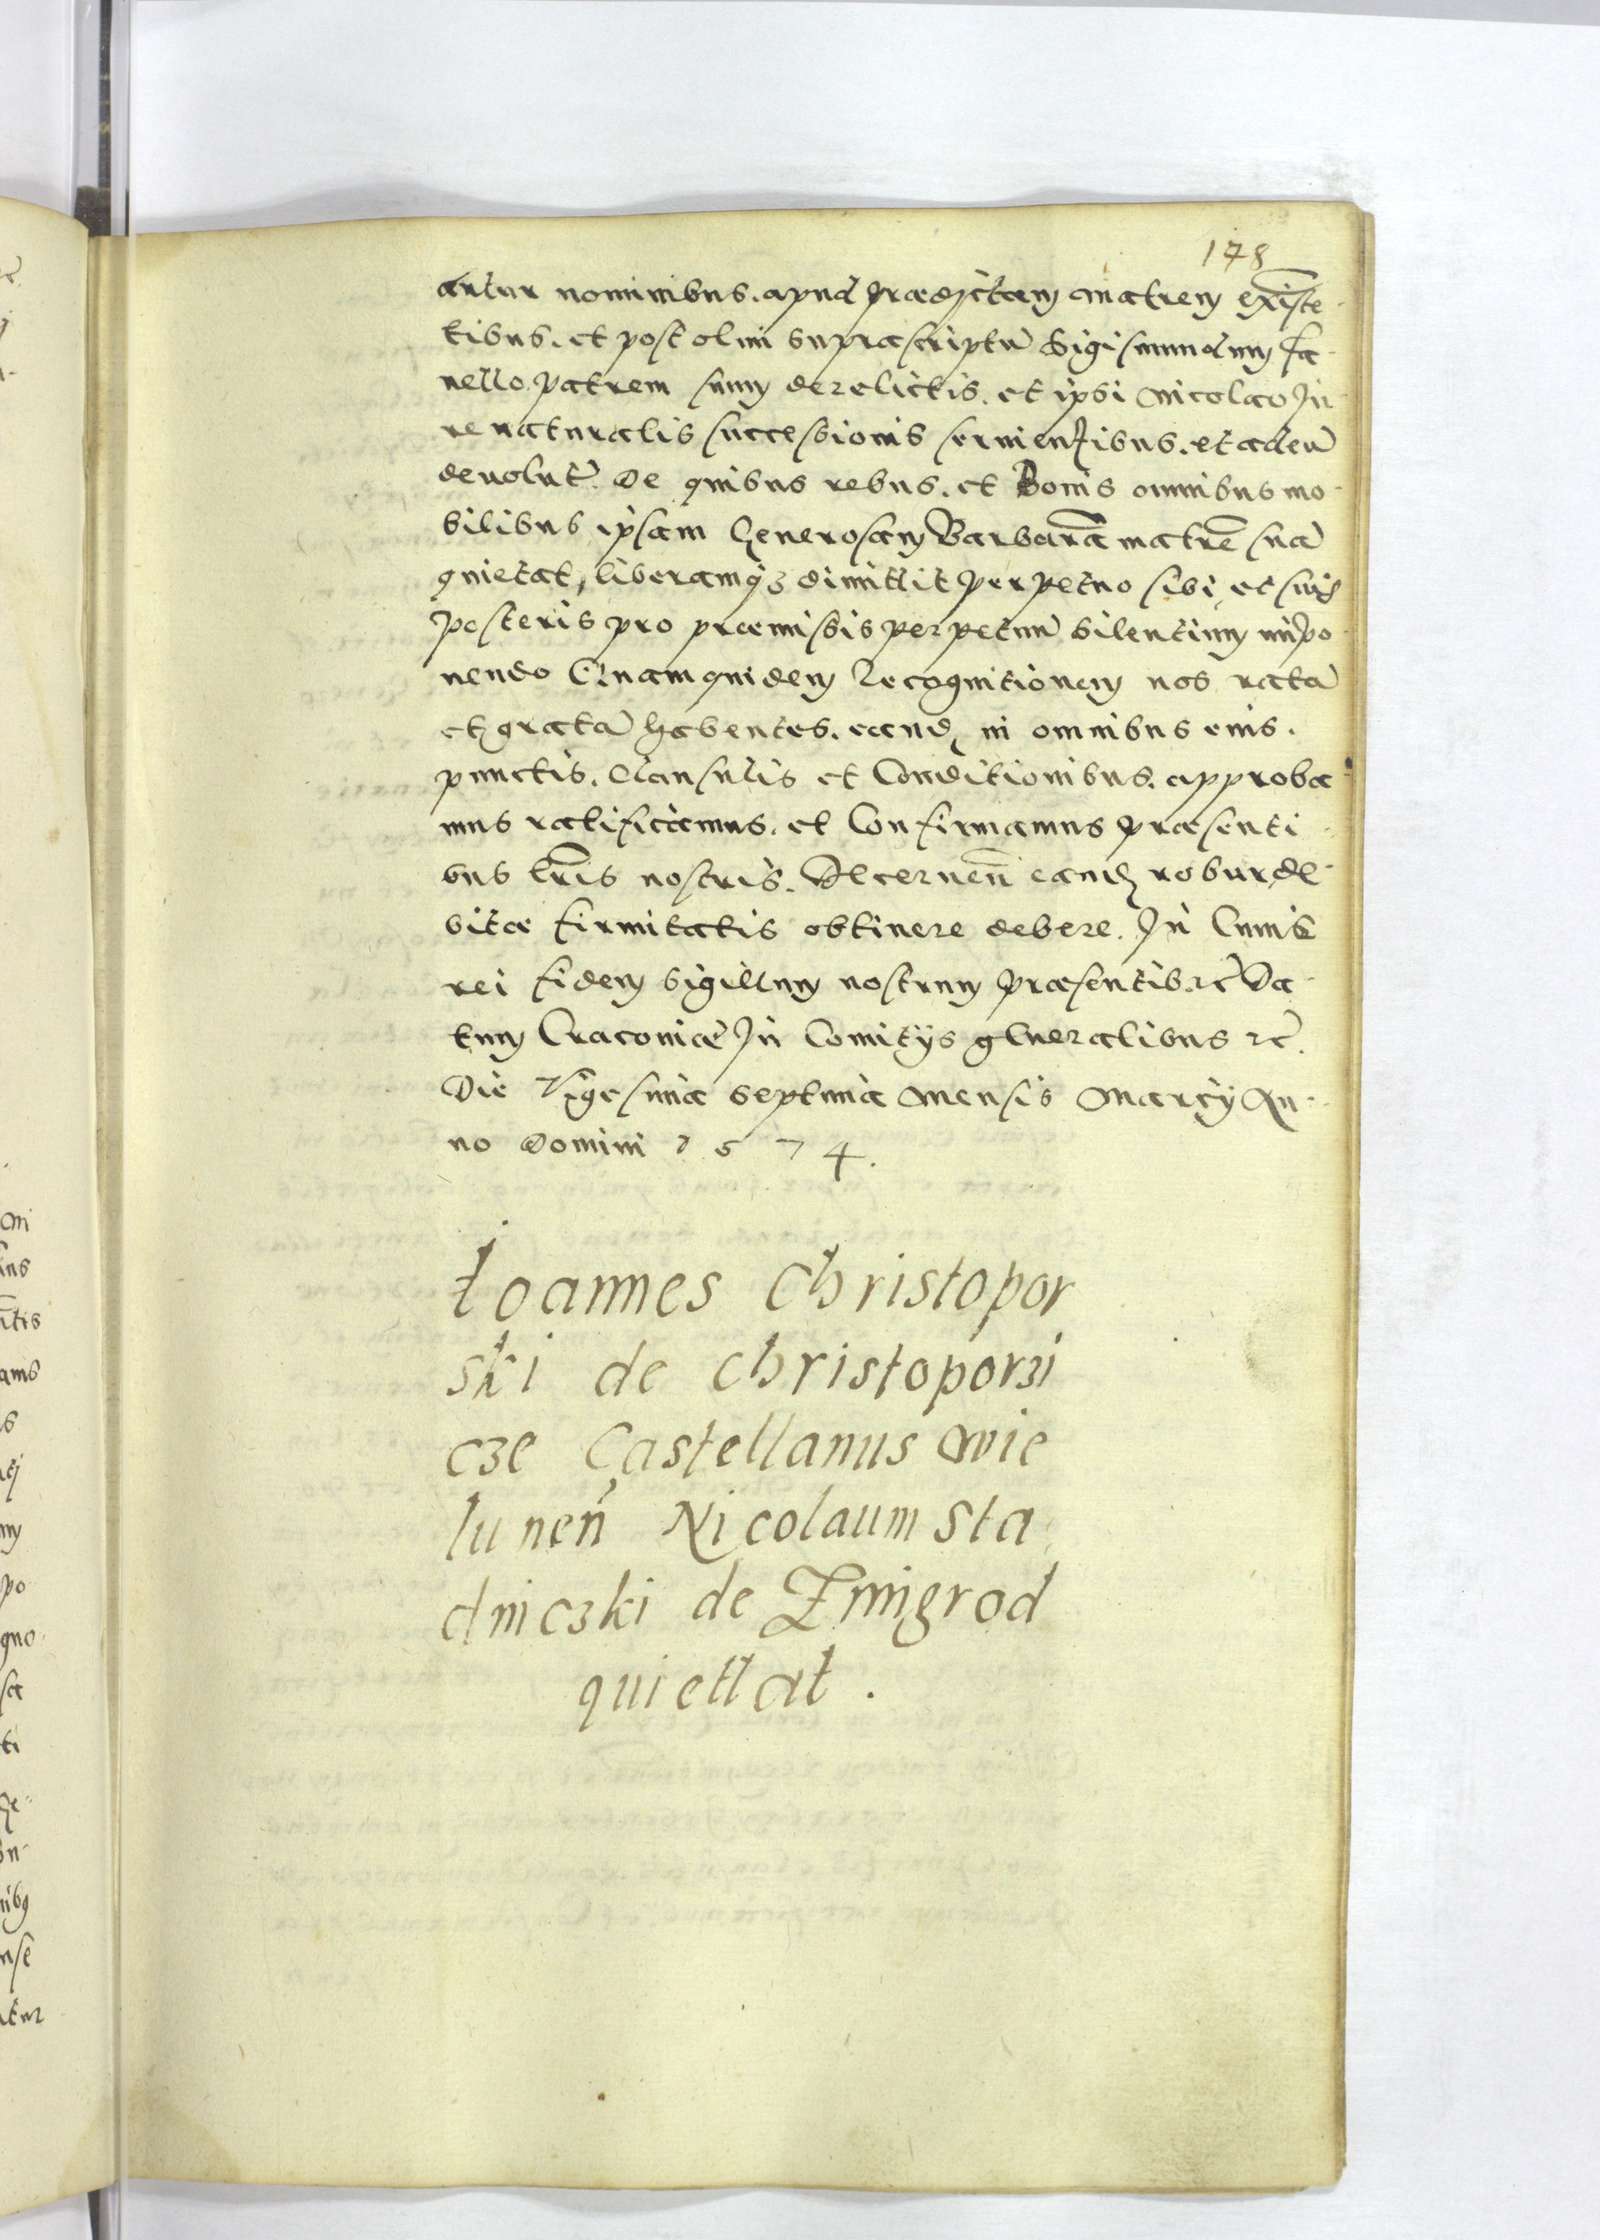 178
antur nominibus. apud prædictam Matrem existē
tibus. et post olim suprascriptū Sigismundum Fa
nello patrem suum derelictis. et ipsi Nicolao Ju
re naturalis successionis servientibus. et ad eū
devolut̄. De quibus rebus. et Bonis omnibus mo
bilibus ipsam Generosam Barbarā matrē suā
quietat, liberamq3 dimittit perpetuo sibi, et suis
posteris pro præmissis perpetuū silentium impo
nendo Quamquidem Recognitionem nos ratā
et gratā habentes. eand in omnibus eius.
punctis. Clausulis et Conditionibus. approba
mus ratificamus. et Confirmamus præsenti
bus lr̄is nostris. Decernen̄ eand robur de
bitæ firmitatis obtinere debere. In Cuius
rei fidem Sigillum nostrum præsentib. &c Da
tum Cracoviæ In Comitijs generalibus &c.
Die Vigesima Septima Mensis Marcij An
no Domini 1574.
Ioannes Christopor
ski de Christoporzi
cze Castellanus Wie
lunen̄ Nicolaum Sta
dniczki de Zmigrod
quiettat.